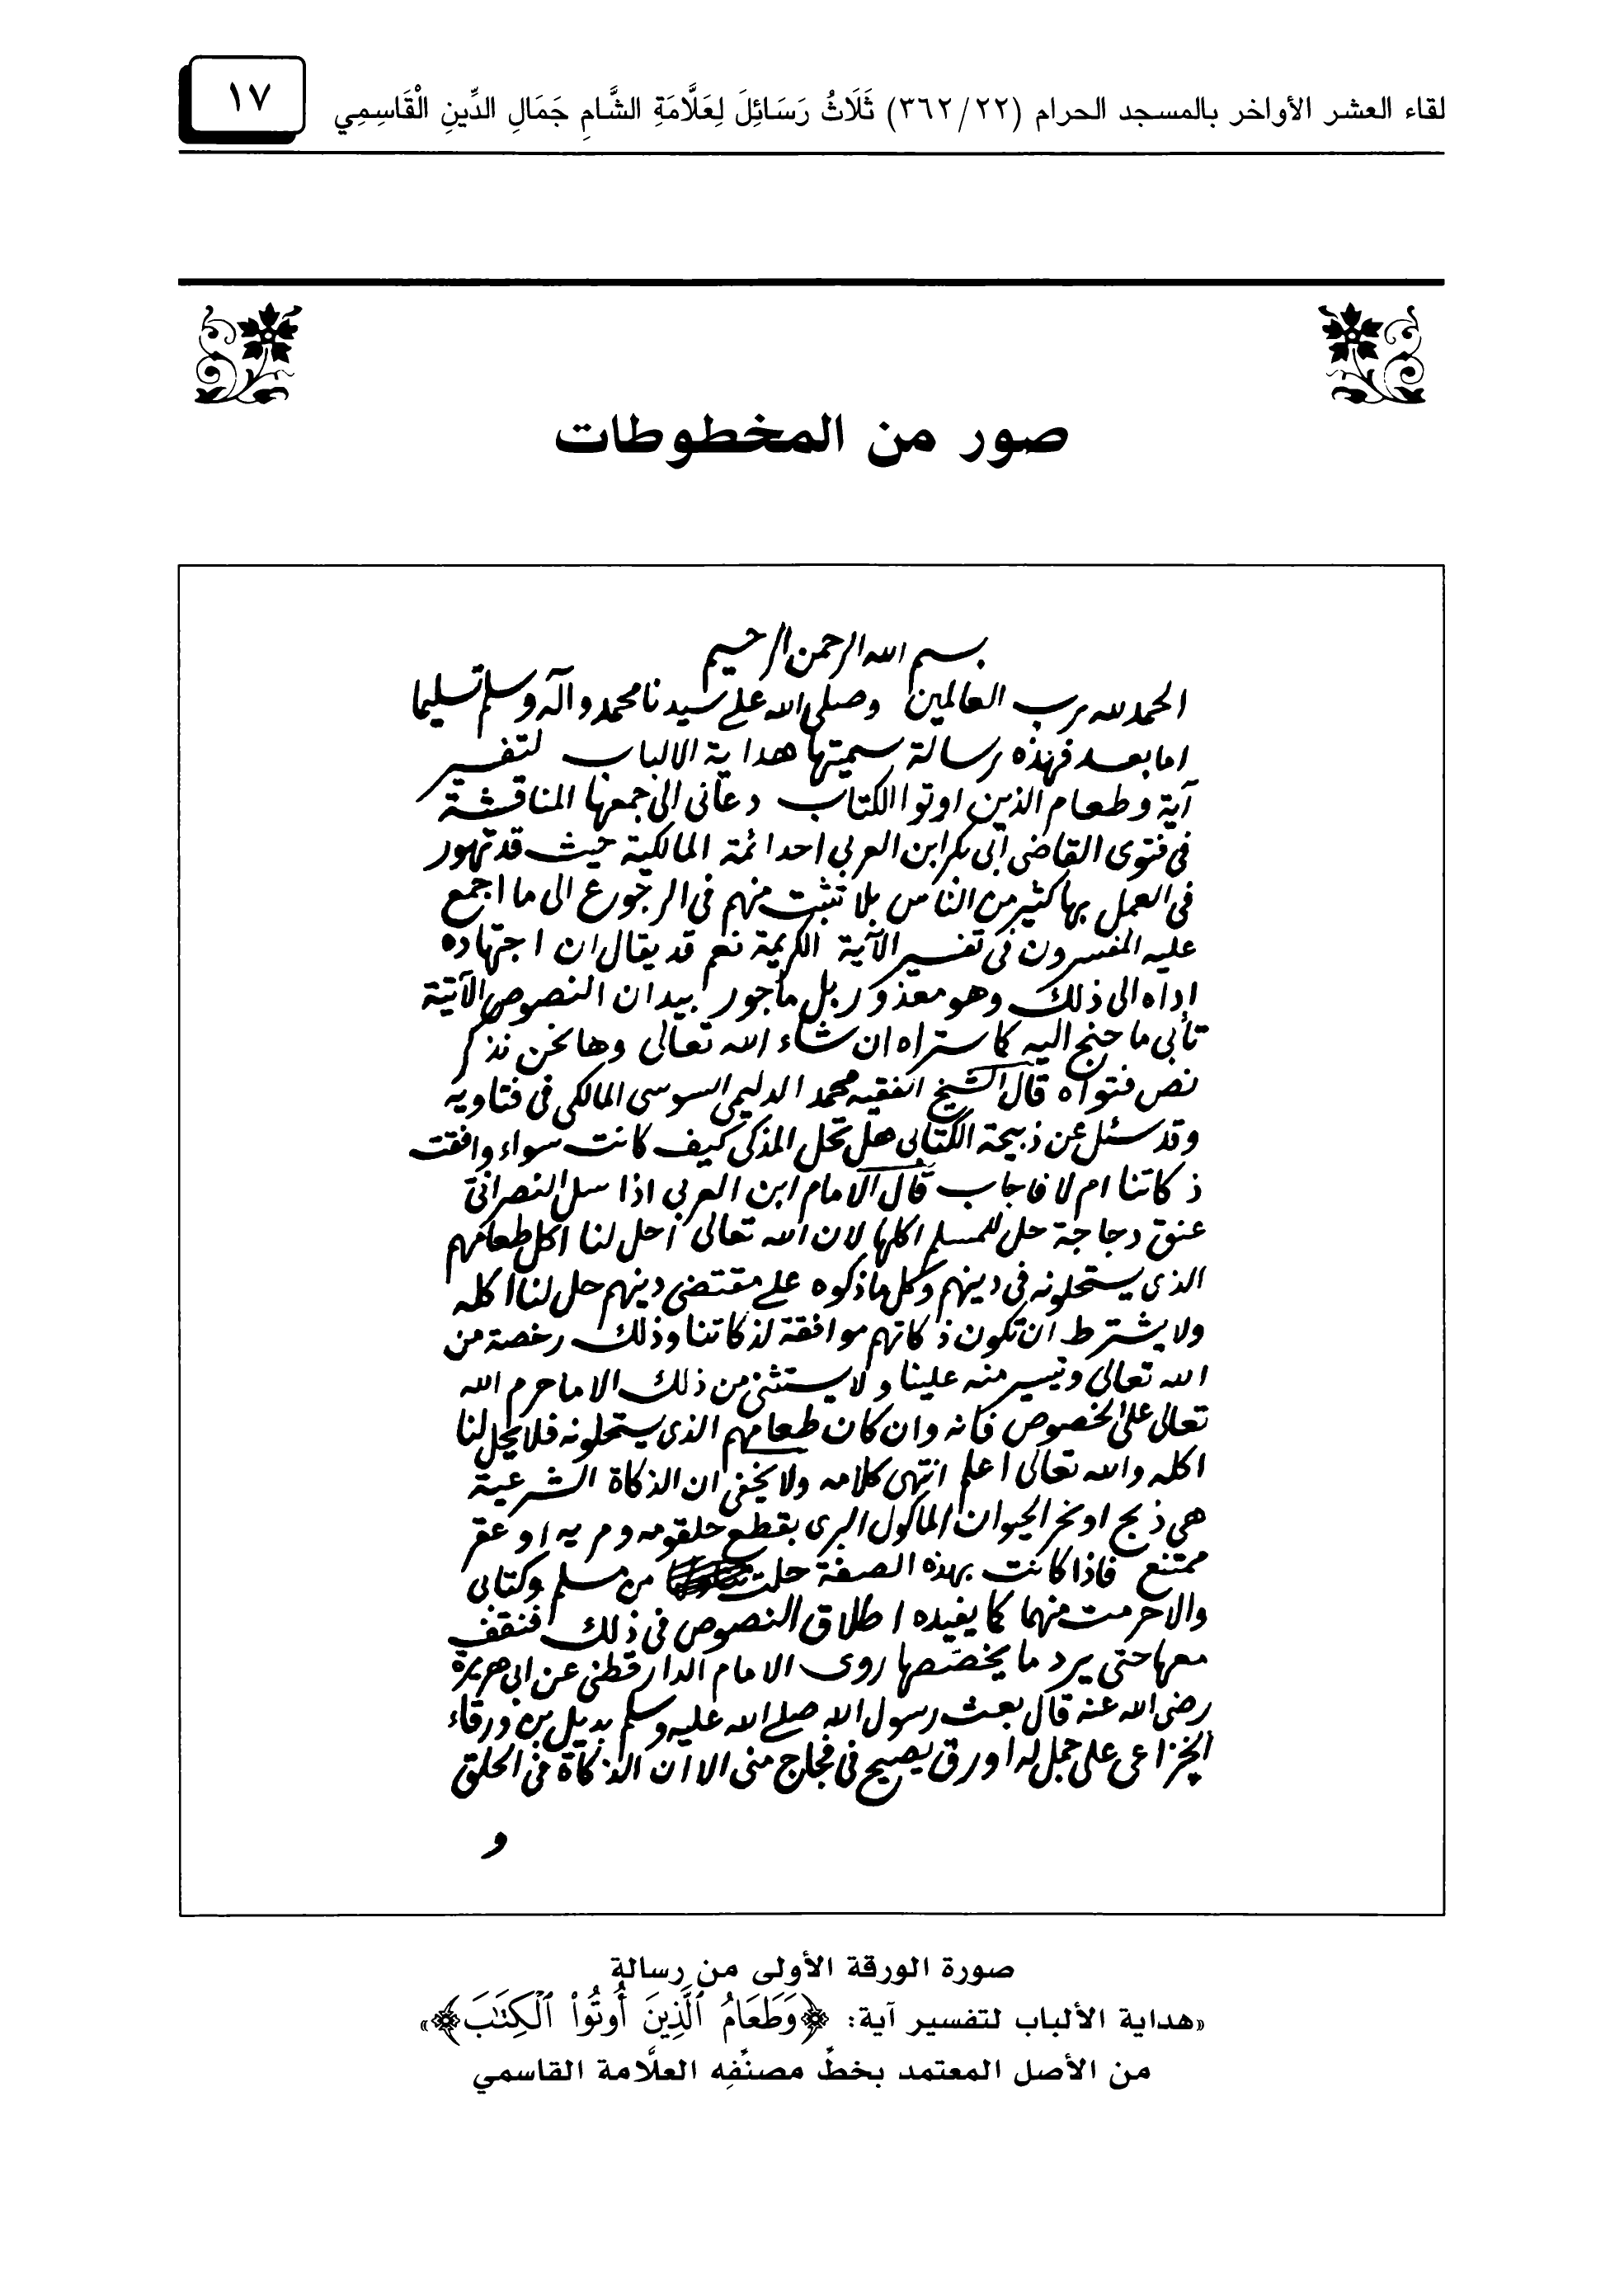 لقاء العشر الأواخر بالمسجد الحرام (٣٦٢/٢٢) ثَلَاثُ رَسَائِلَ لِعَلَّامَةِ الشَّامِ جَمَالِ الدِّينِ الْقَاسِمِي
١٧
صور من المخطوطات
بسم الله الرحمن الرحيم
الحمد لله رب العالمين وصلى الله على سيدنا محمد وآله وسلم تسليما
اما بعد فهذه رسالة سميتها هداية الالباب لتفسير
آية وطعام الذين اوتوا الكتاب دعانى الى جمعها المناقشة
فى فتوى القاضى أبى بكر ابن العربى احد ائمة المالكية حيث قد تهور
فى العمل بها كثير من الناس بلا تثبت منهم فى الرجوع الى ما اجمع
عليه المفسرون فى تفسير الآية الكريمة نعم قد يقال ان اجتهاده
اداه الى ذلك وهو معذور بل مأجور بيد ان النصوص الآتية
تأبى ما جنح اليه كما ستراه ان شاء الله تعالى وها نحن نذكر
نص فتواه قال الشيخ الفقيه محمد الدليمى السوسى المالكى فى فتاويه
وقد سئل عن ذبيحة الكتابى هل تحل المذكى كيف كانت سواء وافقت
ذكاتنا ام لا فاجاب قال الامام ابن العربى اذا سل النصرانى
عنق دجاجة حل للمسلم اكلها لان الله تعالى احل لنا اكل طعامهم
الذى يستحلونه فى دينهم وكل ما ذكوه على مقتضى دينهم حل لنا اكله
ولا يشترط ان تكون ذكاتهم موافقة لذكاتنا وذلك رخصة من
الله تعالى وتيسير منه علينا ولا يستثنى من ذلك الا ما حرم الله
تعالى على الخصوص فانه وان كان طعامهم الذى يستحلونه فلا يحل لنا
اكله والله تعالى اعلم انتهى كلامه ولا يخفى ان الذكاة الشرعية
هى ذبح او نحر الحيوان المأكول البرى بقطع حلقومه ومريه او عقر
ممتنع فاذا كانت بهذه الصفة حلت من مسلم وكتابى
والا حرمت منهما كما يفيده اطلاق النصوص فى ذلك فنقف
معها حتى يرد ما يخصّصها روى الامام الدارقطنى عن ابى هريرة
رضى الله عنه قال بعث رسول الله صلى الله عليه وسلم بديل بن ورقاء
الخزاعى على جمل له اورق يصيح فى فجاج منى الا ان الذكاة فى الحلق
و
صورة الورقة الأولى من رسالة
«هداية الألباب لتفسير آية: ﴿وَطَعَامُ ٱلَّذِينَ أُوتُوا۟ ٱلْكِتَـٰبَ﴾»
من الأصل المعتمد بخطِّ مصنِّفِه العلَّامة القاسمي